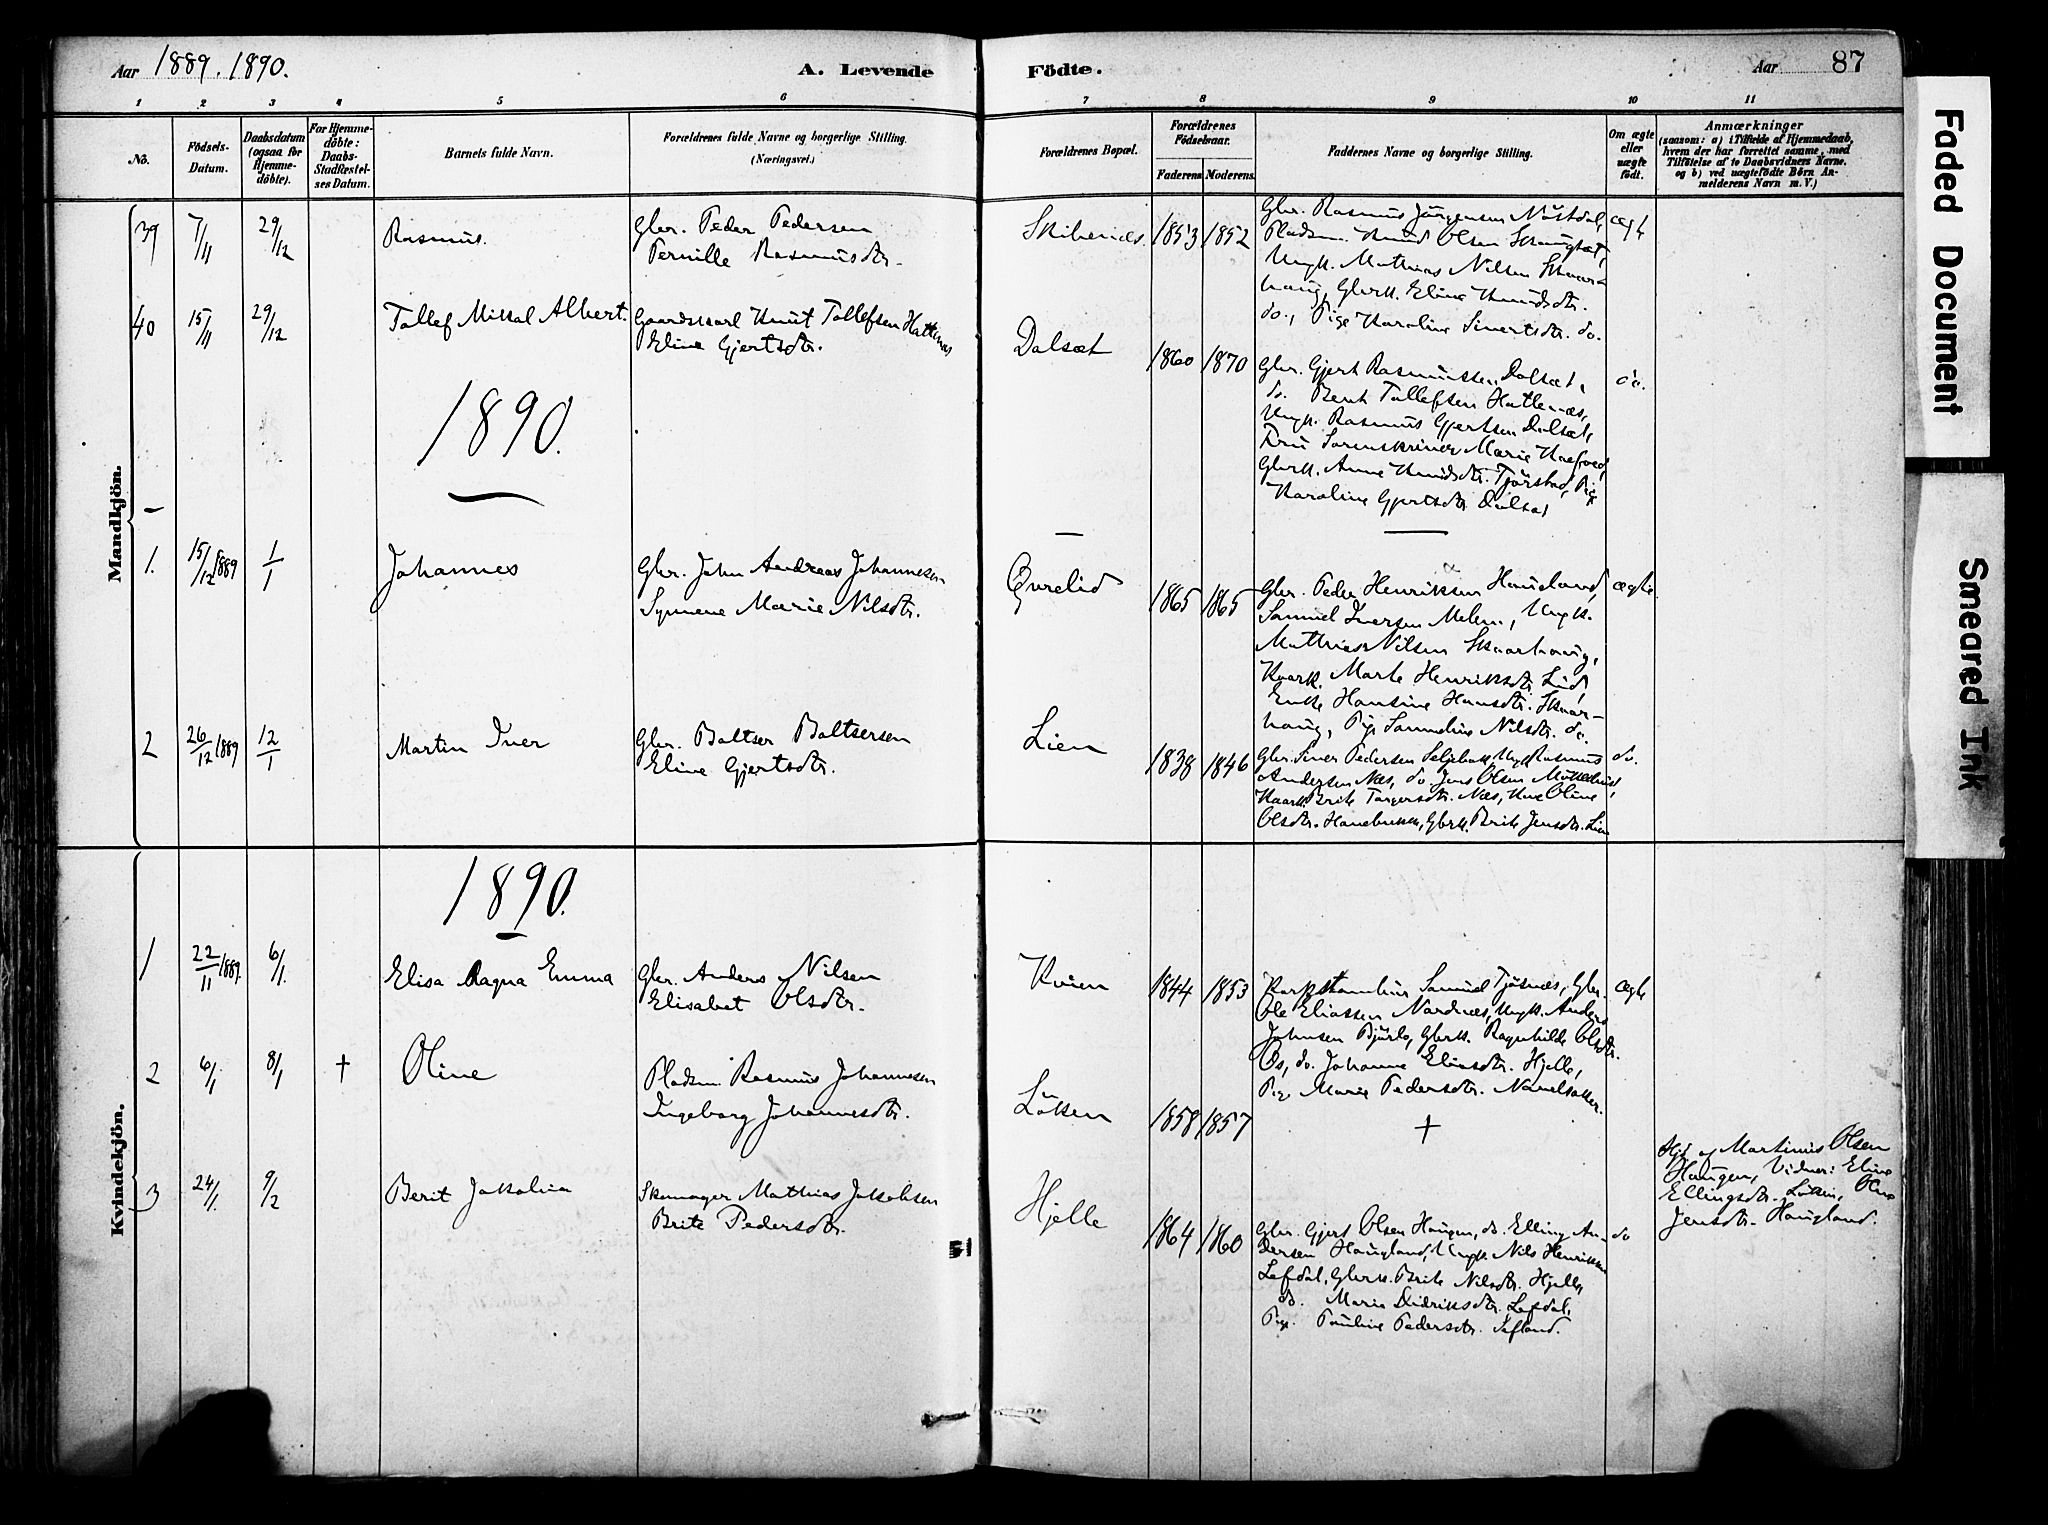 Aar 1889. 1890.
A. Levende Födte.
Aar 87
1 2 3 4 5 6 7 8 9 10 11
No.
Födsels-Datum.
Daabsdatum (ogsaa for Hjemme-döbte).
For Hjemme-döbte: Daabs-Stadfæstel-ses Datum.
Barnets fulde Navn.
Forældrenes fulde Navne og borgerlige Stilling.
(Næringsvei.)
Forældrenes Bopæl.
Forældrenes Födselsaar.
Faderens Moderens
Faddernes Navne og borgerlige Stilling.
Om ægte eller uægte födt.
Anmærkninger
(saasom: a) i Tilfælde af Hjemmedaab,
hvem der har forrettet samme, med
Tilföielse af to Daabsvidners Navne,
og b) ved uægtefödte Börn An-
melderens Navn m. V.)
Mandkjön.
39 7/11 29/12 Rasmus.
Gbr. Peder Pedersen
Pernille Rasmusdtr.
Skibenes 1853 1852
Gbr. Rasmus Jörgensen Nöstdal,
Pladsm. Knud Olsen Skaugset,
Ungk. Mathias Nilsen Skaar-
haug, Gbrk. Eline Knudsdtr.
do., Pige Karoline Sivertsdtr. do.
ægte
40 15/11 29/12 Tollef Mikal Albert.
Gaardskarl Knut Tollefsen Hatlenes
Eline Gjertsdtr.
Dalsæt 1860 1870
Gbr. Gjert Rasmussen Dalsæt,
do. Bent Tollefsen Hatlenæs,
Ungk. Rasmus Gjertsen Dalsæt,
Fru Sorenskriver Marie
Gbrk. Anne Knudsdtr. Tjörstad, Pige
Karoline Gjertsdtr. Dalsæt
do.
1890.
1. 15/12 1889 1/1 Johannes
Gbr. John Andreas Johannesen
Synneve Marie Nilsdtr.
Qvrelid 1865 1865
Gbr. Peder Henriksen Haugland,
Samuel Iversen Melem, Ungk.
Mathias Nilsen Skaarhaug,
Kaark. Marte Henriksdtr. Lid,
Enke Hansine Hansdtr. Skaar-
haug, Pige Samueline Nilsdtr. do.
ægte.
2 26/12 1889 12/1 Martin Iver
Gbr. Baltser Baltsersen
Eline Gjertsdtr.
Lien 1838 1846
Gbr. Siver Pedersen Ungk. Rasmus
Andersen Næs, do. Jens Olsen
Kaark. Brite Torgersdtr. Næs, Kone Oline
Olsdtr. Gbrk. Brite Jensdtr. Lien
do.
Kvindekjön.
1890.
1 22/11 1889. 6/1. Elisa Ragna Emma
Gbr. Anders Nilsen
Elisabet Olsdtr.
Kvien 1844 1853
Samuel Tjösnæs, Gbr.
Ole Eliassen Nordnæs, Ungk. Anders
Johnsen Bjørlo, Gbrk. Ragnhilde Olsdtr.
Os, do. Johanne Eliasdtr. Hjelle,
Pige Marie Pedersdtr. Navelsaker.
ægte
2 6/1 8/1 † Oline
Pladsm. Rasmus Johannesen
Ingeborg Johannesdtr.
Löken 1858 1857
†
Hjd. af Martinus Olsen
Haugen, Vidner: Eline
Ellingsdtr. Löken, Oline
Jensdtr. Haugland.
3 24/1. 9/2 Berit Jakobina
Skomager Mathias Jakobsen
Brite Pedersdtr.
Hjelle 1864 1860
Gbr. Gjert Olsen Haugen, do. Elling An-
dersen Haugland, Ungk. Nils Henriksen
Lefdal, Gbrk. Brite Nilsdtr. Hjelle,
do. Marie Didriksdtr. Lefdal,
Pige Pauline Pedersdtr. Sefland.
do
Faded Document
Smeared Ink